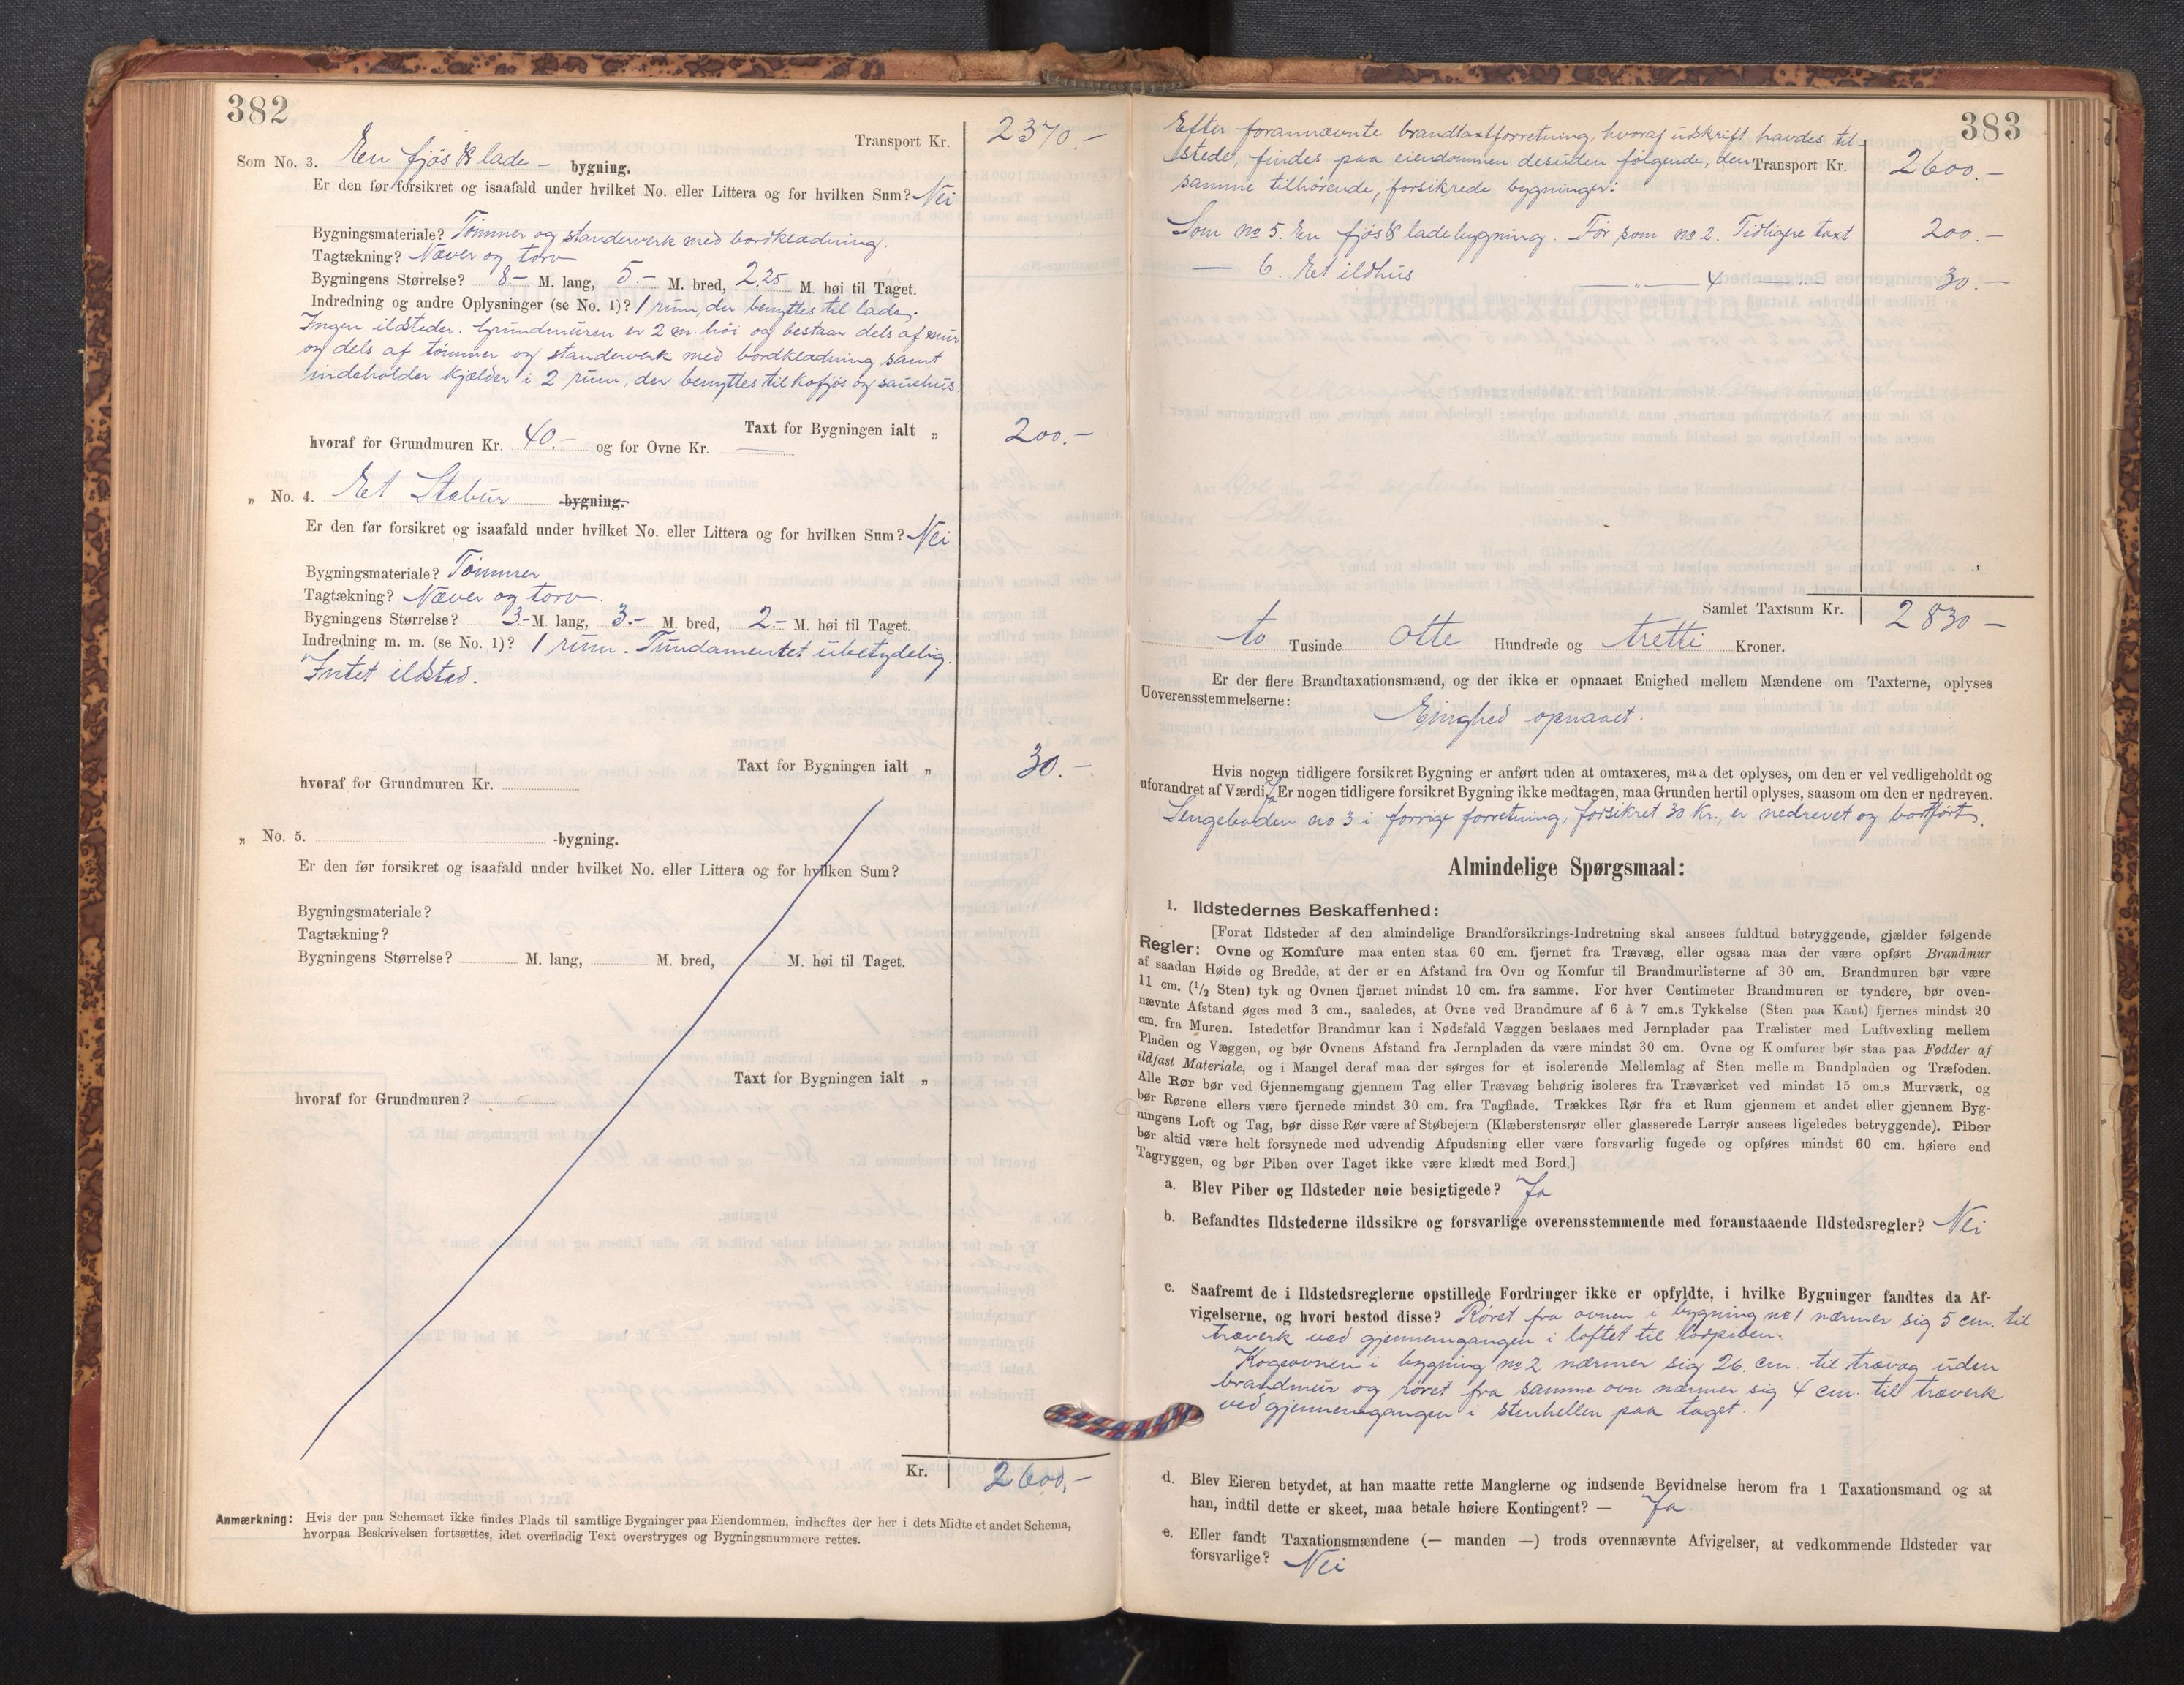 382
Transport Kr. 2370.-
Som No. 3. En fjøs & lade - bygning.
Er den før forsikret og isaafald under hvilket No. eller Littera og for hvilken Sum? Nei
Bygningsmateriale? Tømmer og standerverk med bordklædning.
Tagtækning? Næver og torv
Bygningens Størrelse? 8.- M. lang, 5.- M. bred, 2,25 M. høi til Taget.
Indredning og andre Oplysninger (se No. 1)? 1 rum, der benyttes til lade.
Ingen ildsteder. Grundmuren er 2 m. høi og bestaar dels af mur
og dels af tømmer og standerverk med bordklædning samt
indeholder kjælder i 2 rum, der benyttes til kofjøs og sauehus.
Taxt for Bygningen ialt „ 200.-
hvoraf for Grundmuren Kr. 40.- og for Ovne Kr. —
„ No. 4. Et Stabur -bygning.
Er den før forsikret og isaafald under hvilket No. eller Littera og for hvilken Sum? Nei
Bygningsmateriale? Tømmer
Tagtækning? Næver og torv.
Bygningens Størrelse? 3.- M. lang, 3.- M. bred, 2.- M. høi til Taget.
Indredning m. m. (se No. 1)? 1 rum. Fundamentet ubetydelig.
Intet ildsted.
Taxt for Bygningen ialt „ 30.-
hvoraf for Grundmuren Kr.
„ No. 5. -bygning.
Er den før forsikret og isaafald under hvilket No. eller Littera og for hvilken Sum?
Bygningsmateriale?
Tagtækning?
Bygningens Størrelse? M. lang, M. bred, M. høi til Taget.
Taxt for Bygningen ialt „
hvoraf for Grundmuren?
Kr. 2600,-
Anmærkning: Hvis der paa Schemaet ikke findes Plads til samtlige Bygninger paa Eiendommen, indheftes der her i dets Midte et andet Schema,
hvorpaa Beskrivelsen fortsættes, idet overflødig Text overstryges og Bygningsnummere rettes.
383
Efter forannævnte brandtaxtforretning, hvoraf udskrift havdes til-
stede, findes paa eiendommen desuden følgende, den Transport Kr. 2600.-
samme tilhørende, forsikrede bygninger:
Som no 5. En fjøs & ladebygning. Før som no 2. Tidligere taxt 200.-
— 6. Et ildhus — „ — 4 — „ — 30.-
Samlet Taxtsum Kr. 2830-
to Tusinde otte Hundrede og tretti Kroner.
Er der flere Brandtaxationsmænd, og der ikke er opnaaet Enighed mellem Mændene om Taxterne, oplyses
Uoverensstemmelserne:
Einghed opnaaet.
Hvis nogen tidligere forsikret Bygning er anført uden at omtaxeres, maa det oplyses, om den er vel vedligeholdt og
uforandret af Værdi. Ja Er nogen tidligere forsikret Bygning ikke medtagen, maa Grunden hertil oplyses, saasom om den er nedreven.
Sengeboden no 3 i forrige forretning, forsikret 30 Kr., er nedrevet og bortført.
Almindelige Spørgsmaal:
1. Ildstedernes Beskaffenhed:
[Forat Ildsteder af den almindelige Brandforsikrings-Indretning skal ansees fuldtud betryggende, gjælder følgende
Regler: Ovne og Komfure maa enten staa 60 cm. fjernet fra Trævæg, eller ogsaa maa der være opført Brandmur
af saadan Høide og Bredde, at der er en Afstand fra Ovn og Komfur til Brandmurlisterne af 30 cm. Brandmuren bør være
11 cm. (1/2 Sten) tyk og Ovnen fjernet mindst 10 cm. fra samme. For hver Centimeter Brandmuren er tyndere, bør oven-
nævnte Afstand øges med 3 cm., saaledes, at Ovne ved Brandmure af 6 à 7 cm.s Tykkelse (Sten paa Kant) fjernes mindst 20
cm. fra Muren. Istedetfor Brandmur kan i Nødsfald Væggen beslaaes med Jernplader paa Trælister med Luftvexling mellem
Pladen og Væggen, og bør Ovnens Afstand fra Jernpladen da være mindst 30 cm. Ovne og Komfurer bør staa paa Fødder af
ildfast Materiale, og i Mangel deraf maa der sørges for et isolerende Mellemlag af Sten mellem Bundpladen og Træfoden.
Alle Rør bør ved Gjennemgang gjennem Tag eller Trævæg behørig isoleres fra Træværket ved mindst 15 cm.s Murværk, og
bør Rørene ellers være fjernede mindst 30 cm. fra Tagflade. Trækkes Rør fra et Rum gjennem et andet eller gjennem Byg-
ningens Loft og Tag, bør disse Rør være af Støbejern (Klæberstensrør eller glasserede Lerrør ansees ligeledes betryggende). Piber
bør altid være helt forsynede med udvendig Afpudsning eller være forsvarlig fugede og opføres mindst 60 cm. høiere end
Tagryggen, og bør Piben over Taget ikke være klædt med Bord.]
a. Blev Piber og Ildsteder nøie besigtigede? Ja
b. Befandtes Ildstederne ildssikre og forsvarlige overensstemmende med foranstaaende Ildstedsregler? Nei
c. Saafremt de i Ildstedsreglerne opstillede Fordringer ikke er opfyldte, i hvilke Bygninger fandtes da Af-
vigelserne, og hvori bestod disse? Røret fra ovnen i bygning no 1 nærmer sig 5 cm. til
træverk ved gjennemgangen i loftet til
Kogeovnen i bygning no 2 nærmer sig 26 cm. til trævæg uden
brandmur og røret fra samme ovn nærmer sig 4 cm. til træverk
ved gjennemgangen i stenhellen paa taget.
d. Blev Eieren betydet, at han maatte rette Manglerne og indsende Bevidnelse herom fra 1 Taxationsmand og at
han, indtil dette er skeet, maa betale høiere Kontingent? — Ja
e. Eller fandt Taxationsmændene (— manden —) trods ovennævnte Afvigelser, at vedkommende Ildsteder var
forsvarlige? Nei